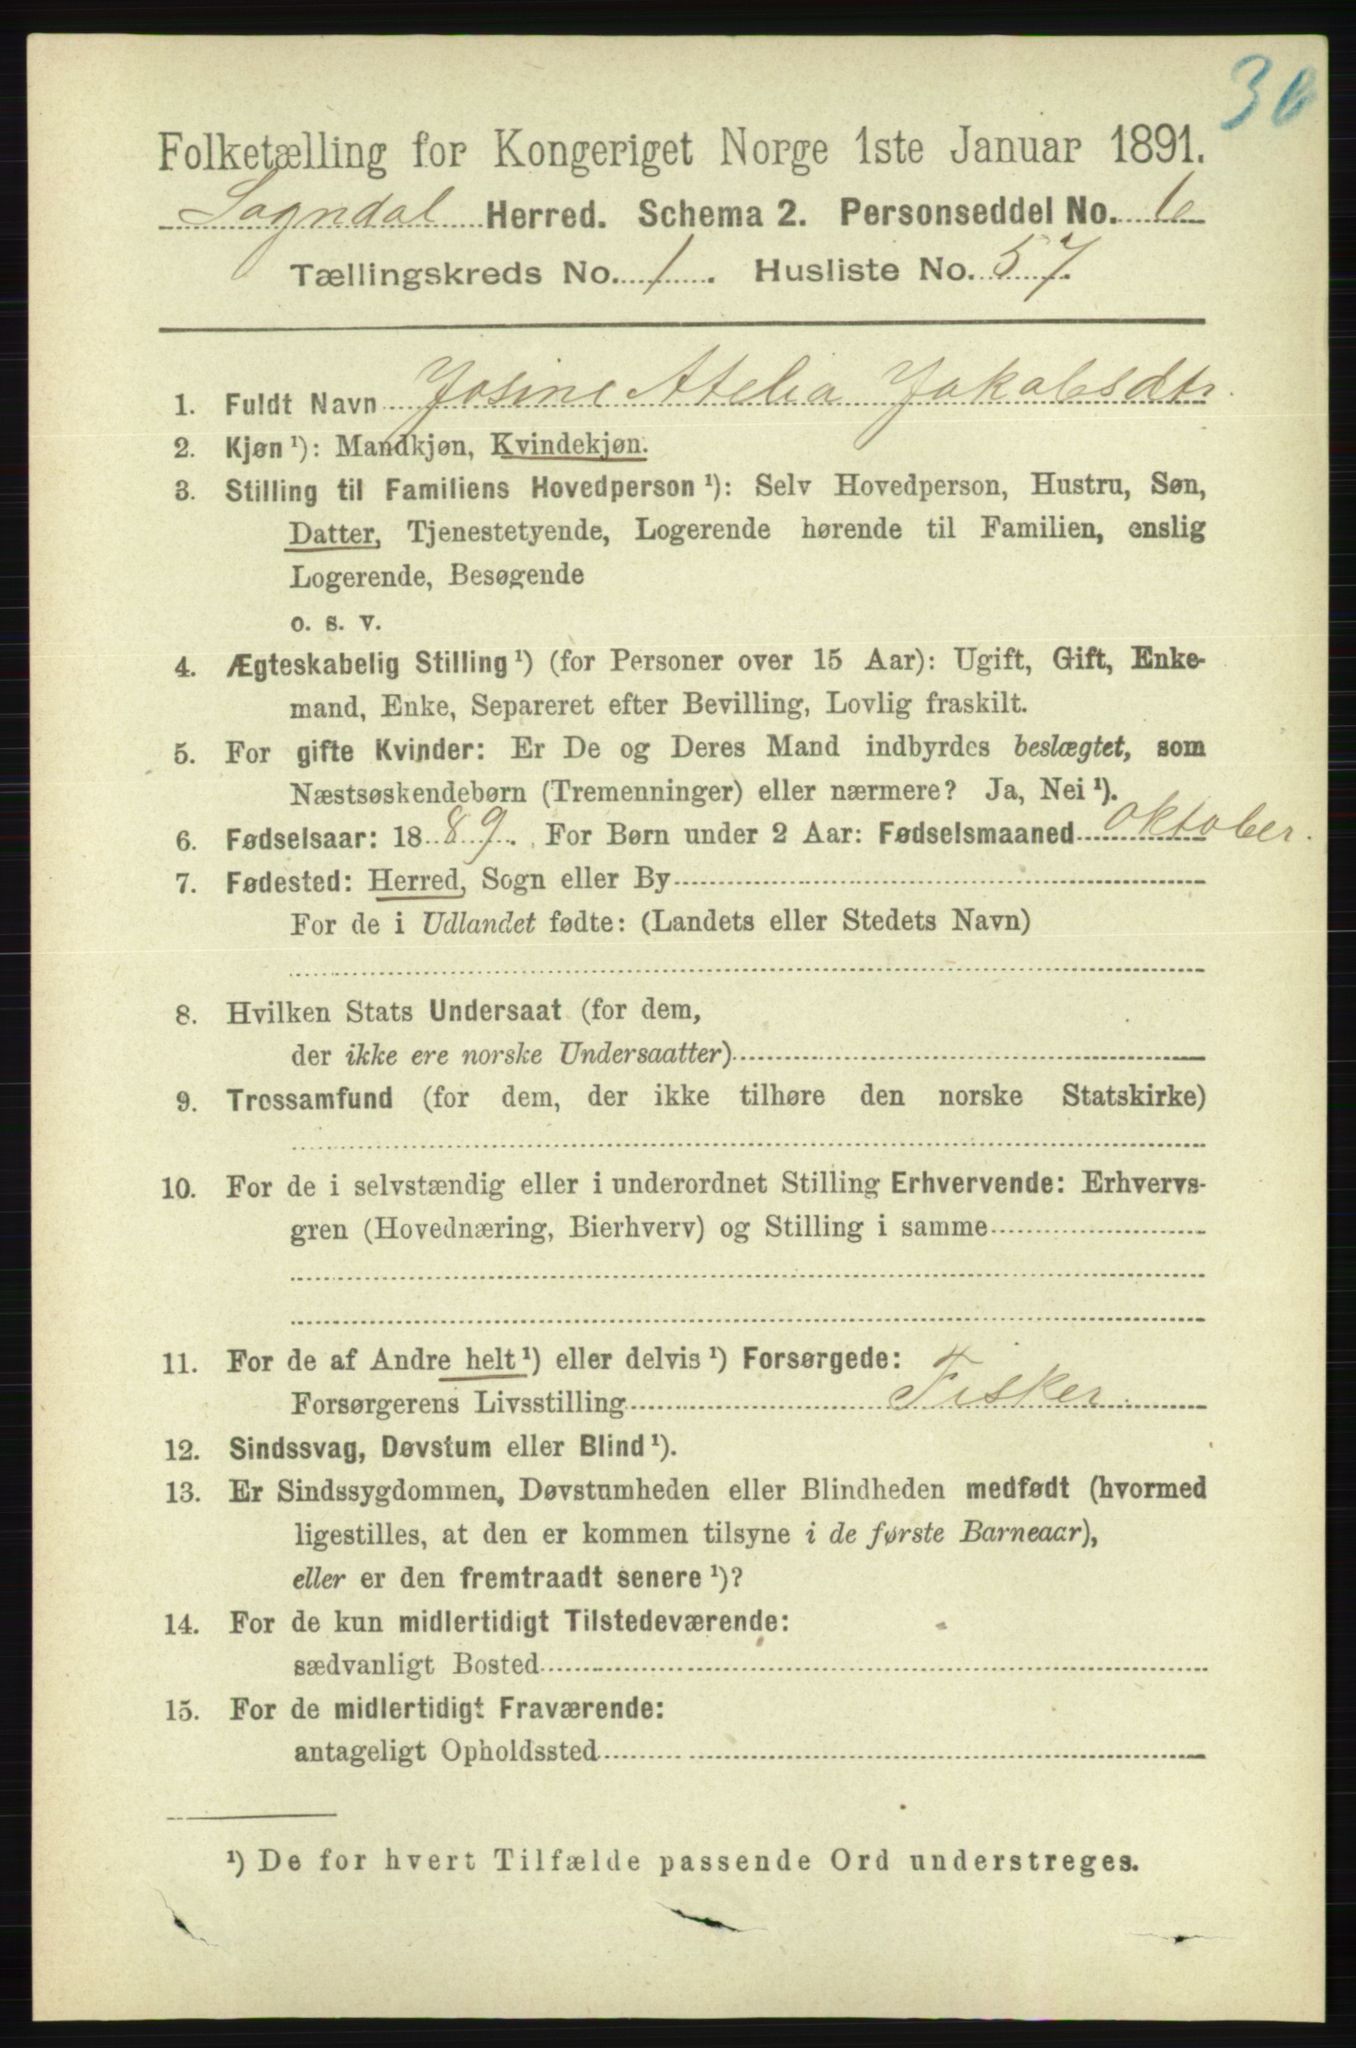 36
Folketælling for Kongeriget Norge 1ste Januar 1891.
Sogndal Herred. Schema 2. Personseddel No. 6
Tællingskreds No. 1. Husliste No. 57.
1. Fuldt Navn Josine Atelia Jakobsdtr.
2. Kjøn ¹): Mandkjøn, Kvindekjøn.
3. Stilling til Familiens Hovedperson ¹): Selv Hovedperson, Hustru, Søn,
Datter, Tjenestetyende, Logerende hørende til Familien, enslig
Logerende, Besøgende
o. s. v.
4. Ægteskabelig Stilling ¹) (for Personer over 15 Aar): Ugift, Gift, Enke-
mand, Enke, Separeret efter Bevilling, Lovlig fraskilt.
5. For gifte Kvinder: Er De og Deres Mand indbyrdes beslægtet, som
Næstsøskendebørn (Tremenninger) eller nærmere? Ja, Nei ¹).
6. Fødselsaar: 1889. For Børn under 2 Aar: Fødselsmaaned oktober.
7. Fødested: Herred, Sogn eller By
For de i Udlandet fødte: (Landets eller Stedets Navn)
8. Hvilken Stats Undersaat (for dem,
der ikke ere norske Undersaatter)
9. Trossamfund (for dem, der ikke tilhøre den norske Statskirke)
10. For de i selvstændig eller i underordnet Stilling Erhvervende: Erhvervs-
gren (Hovednæring, Bierhverv) og Stilling i samme
11. For de af Andre helt ¹) eller delvis ¹) Forsørgede:
Forsørgerens Livsstilling Fisker.
12. Sindssvag, Døvstum eller Blind ¹).
13. Er Sindssygdommen, Døvstumheden eller Blindheden medfødt (hvormed
ligestilles, at den er kommen tilsyne i de første Barneaar),
eller er den fremtraadt senere ¹)?
14. For de kun midlertidigt Tilstedeværende:
sædvanligt Bosted
15. For de midlertidigt Fraværende:
antageligt Opholdssted
¹) De for hvert Tilfælde passende Ord understreges.